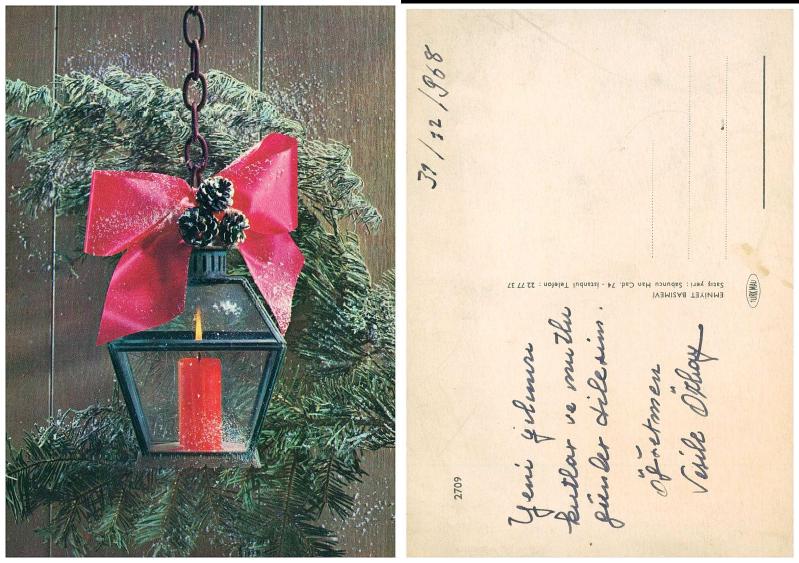 31/12/1968
Yeni yılınızı
kutlar ve mutlu
günler dilerim.
Öğretmen
Vesile Özbay
EMNİYET BASIMEVİ
Satış yeri : Sabuncu Han Cad. 74 - İstanbul Telefon : 22 77 37
2709